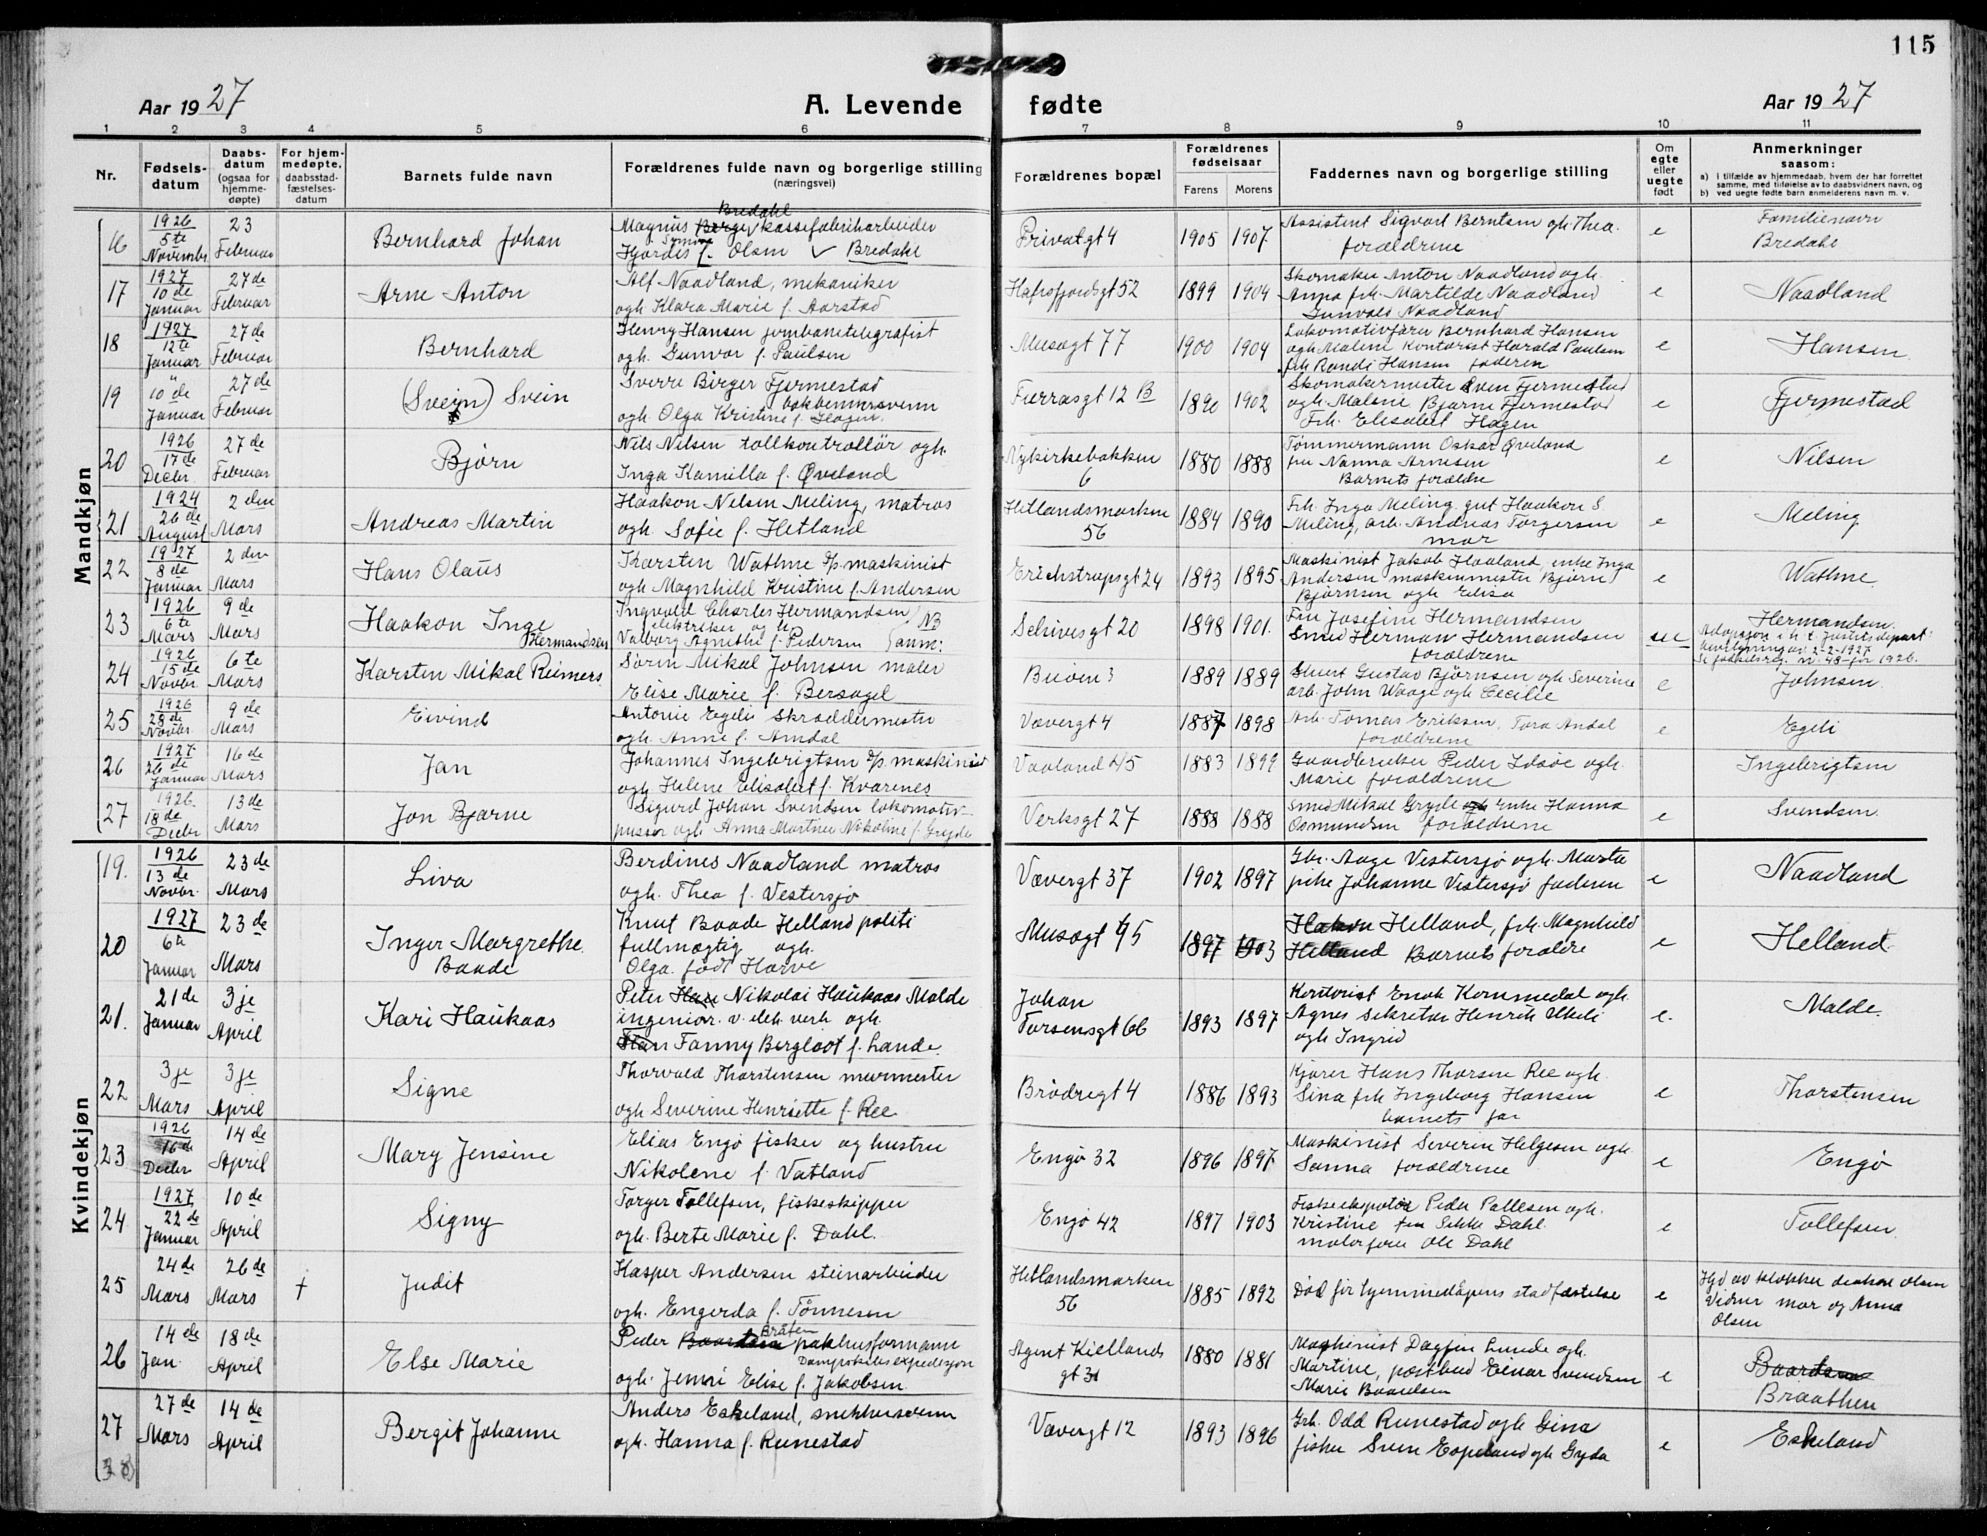 115
Aar 1927 A. Levende fødte Aar 1927
1 2 3 4 5 6 7 8 9 10 11
Nr.
Fødsels-
datum
Daabs-
datum
(ogsaa for
hjemme-
døpte)
For hjem-
medøpte,
daabsstad-
fæstelses-
datum
Barnets fulde navn
Forældrenes fulde navn og borgerlige stilling
(næringsvei)
Forældrenes bopæl
Forældrenes
fødselsaar
Farens Morens
Faddernes navn og borgerlige stilling
Om
egte
eller
uegte
født
Anmerkninger
saasom:
a) i tilfælde av hjemmedaab, hvem der har forrettet
samme, med tilføielse av to daabsvidners navn, og
b) ved uegte fødte barn anmelderens navn m. v.
Mandkjøn
16 1926 5te Novembr 23 Februar
Bernhard Johan
Magnus Berge Bredahl kassefabrikarbeider
Hjørdis f. Olsen Bredahl
Privatgt 4 1905 1907
Assistent Sigvart Berntsen ogh. Thea.
forældrene
e
Familienavn
Bredahl
17 1927 10de Januar 27de Februar
Arne Anton
Alf Naadland, mekaniker
ogh. Klara Marie f. Aarstad
Hafrsfjordsgt 52 1899 1904
Skomaker Anton Naadland ogh.
Anna frk. Martilde Naadland
Gunvald Naadland
e
Naadland
18 1927 12te Januar 27de Februar
Bernhard
Henry Hansen jernbanetelegrafist
ogh. Gunvor f. Paulsen
Musegt 77 1900 1904
Lokomotivfører Bernhard Hansen
ogh Malene kontorist Harald Paulsen
frk Randi Hansen faderen
e
Hansen
19 10de Januar 27de Februar
(Svein) Svein
Sverre Birger Fjermestad
ogh. Olga Kristine f. Hagen
1890 1902
Skomakermester Sven Fjermestad
ogh. Malene Bjarne Fjermestad
Frk. Elisabet Hagen
e
Fjermestad
20 1926 17de Decbr. 27de Februar
Bjørn
Nils Nilsen tollkontrollör ogh.
Inga Kamilla f. Øveland
Nykirkebakken
6 1880 1888
Tømmermann Oskar Øveland
fru Nanna Arnesen
Barnets forældre
e
Nilsen
21 1924 26de August 2den Mars
Andreas Martin
Haakon Nilsen Meling, matros
ogh. Sofie f. Hetland
Hetlandsmarken
56 1884 1890
Frk. Inga Meling gut Haakon S
Meling, arb. Andreas Torgersen
mor
e
Meling
22 1927 8de Januar 2den Mars
Hans Olaus
Karsten Wathne d/s maskinist
ogh Magnhild Kristine f. Andersen
Erichstrupsgt 24 1893 1895
Maskinist Jakob Haaland, enke Inga
Andersen maskinmester Bjørn
Bjørnsen ogh Elisa
e
Wathne
23 1926 6te Mars 9de Mars
Haakon Inge
Hermandsen
Ingvald Charles Hermandsen
elektriker og h.
Valborg Agnethe f. Pedersen
NB
anm:
Sehivesgt 20 1898 1901.
Fru Josefine Hermandsen
Smed Herman Hermandsen
forældrene
Hermandsen.
24 1926 15de Novbr. 6te Mars
Karsten Mikal Reimers
Sørin Mikal Johnsen maler
Elise Marie f. Bersagel
Buøen 3 1889 1889
Gustav Bjørnsen og Severine
arb. John Waage ogh Cecilie
e
Johnsen
25 1926 28de Novbr. 9de Mars
Eivind
Antonie Egeli Skræddermester
ogh. Anne f. Amdal
Vævergt 4 1887 1898
Arb. Tomas Eriksen. Tora Andal
forældrene
e
Egeli
26 1927 26de Januar 16de Mars
Jan
Johannes Ingebrigtsen d/s maskinist
ogh Helene Elisabet f. Kvarenes
Vaaland 45 1883 1899
Gaardbruker Peder Idsøe ogh.
Marie forældrene
Ingebrigtsen
27 1926 18de Decbr 13de Mars
Jon Bjarne
Sigurd Johan Svendsen lokomotiv-
pusser ogh Anna Martine Nikoline f. Gryde
Verksgt 27 1888 1888
Smed Mikal Gryde ogh Enke Hanna
Osmundsen forældrene
e
Svendsen
Kvindekjøn
19. 1926 13de Novbr. 23de Mars
Liva
Berdines Naadland matros
ogh. Thea f. Vestersjø
Vævergt 37 1902 1897
Gbr. Aage Vestersjø ogh. Marta
pike Johanne Vestersjø faderen
e
Naadland
20 1927 6te Januar 23de Mars
Inger Margrethe
Baade
Knut Baade Helland politi
fullmægtig ogh.
Olga født Harve
Musegt 95 1897 1903
Haakon Helland, frk. Magnhild
Helland Barnets foreldre
e
Helland
21. 21de Januar 3je April
Kari Haukaas
Peter Nikolai Haukaas Malde
ingeniør. v. elek. verk ogh.
Fanny Bergljot f. Lande.
Johan
Torsensgt 66 1893 1897
Kontorist Enok Kommedal ogh.
Agnes Sekretær Henrik Ueli
ogh Ingrid
e.
Malde.
22 3je Mars 3je April
Signe
Thorvald Thorstensen murmester
ogh Severine Henriette f. Ree
Brödregt 4 1886 1893
Kjører Hans Thorsen Ree ogh.
Sina frk Ingeborg Hansen
barnets far
e
Thorstensen
23 1926 16de Decbr 14de April
Mary Jensine
Elias Engø fisker og hustru
Nikolene f. Vatland
Engø 32 1896 1897
Maskinist Severin Helgesen ogh.
Sanna forældrene
e
Engø
24 1927 22de Januar 10de April
Signy
Torger Tollefsen, fiskeskipper
ogh. Berte Marie f. Dahl.
Engø 42 1897 1903
Fiskeeksportør Peder Pallesen ogh.
Kristine fru Sikke Dahl
motorfører Ole Dahl
e
Tollefsen
25 24de Mars 26de Mars †
Judit
Kasper Andersen steinarbeider
ogh. Engerda f. Tönnesen
Hetlandsmarken
56 1885 1892
Död før hjemmedåpens stadfæstelse
e
Olsen
Vidner mor og Anna
Olsen
26 14de Jan. 18de April
Else Marie
Peder Baardsen Bråten pakhusformann
Dampskibsexpedisjon
ogh. Jenni Elise f. Jakobsen
Agent Kiellands
gt 31 1880 1881
Maskinist Dagfin Lunde ogh.
Martine, postbud Einar Svendsen
Marie Baardsen
e
Baardsen
Braathen
27 27de Mars 14de April
Bergit Johanne
Anders Eskeland, snekkersvenn
ogh. Hanna f. Runestad
Vævergt 12 1893 1896
Grb. Odd Runestad ogh Gina
fisker Sven Espeland ogh Gyda
e
Eskeland